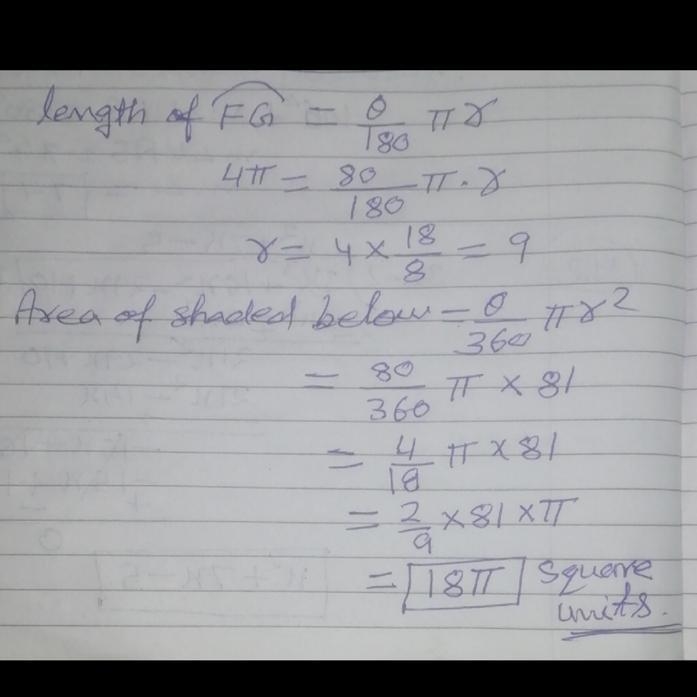 length of FG = θ/180 πr
4π = 80/180 π·r
r = 4 × 18/8 = 9
Area of shaded below = θ/360 πr²
= 80/360 π × 81
= 4/18 π × 81
= 2/9 × 81 × π
= 18π square units.